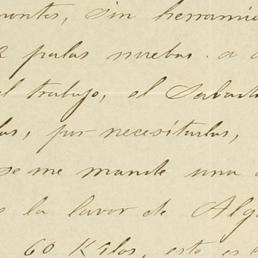 montes, sin herramie
2 palas nuebas. a
el trabajo, el Sabado
las, por necesitarlas,
se me mande una
la labor de Alg
60 Kilos, esto es